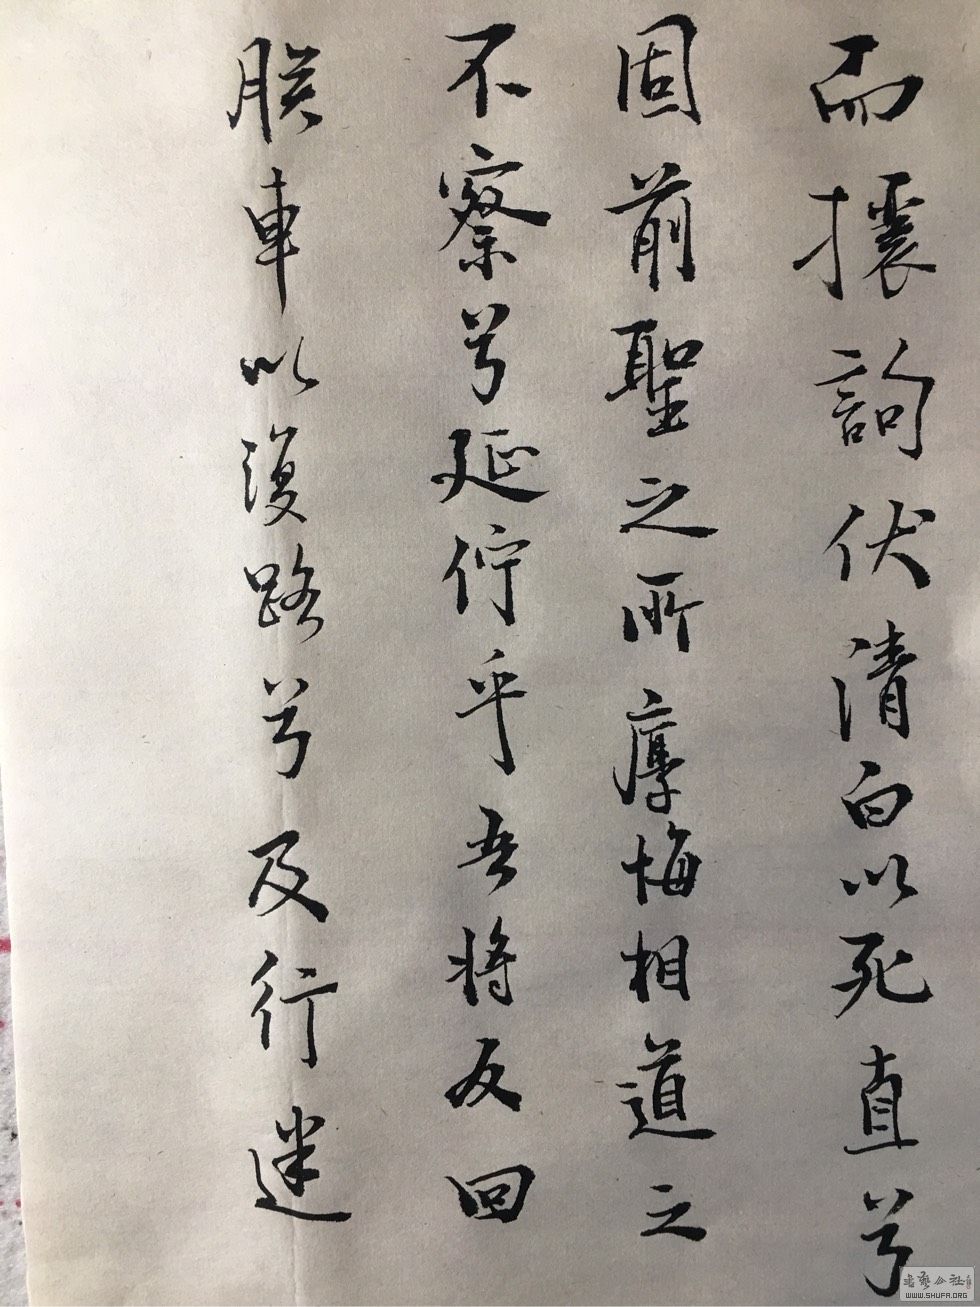 而攘詢伏清白以死直兮
固前聖之所厚悔相道之
不察兮延佇乎吾將反回
朕車以復路兮及行迷
書藝公社
WWW.SHUFA.ORG